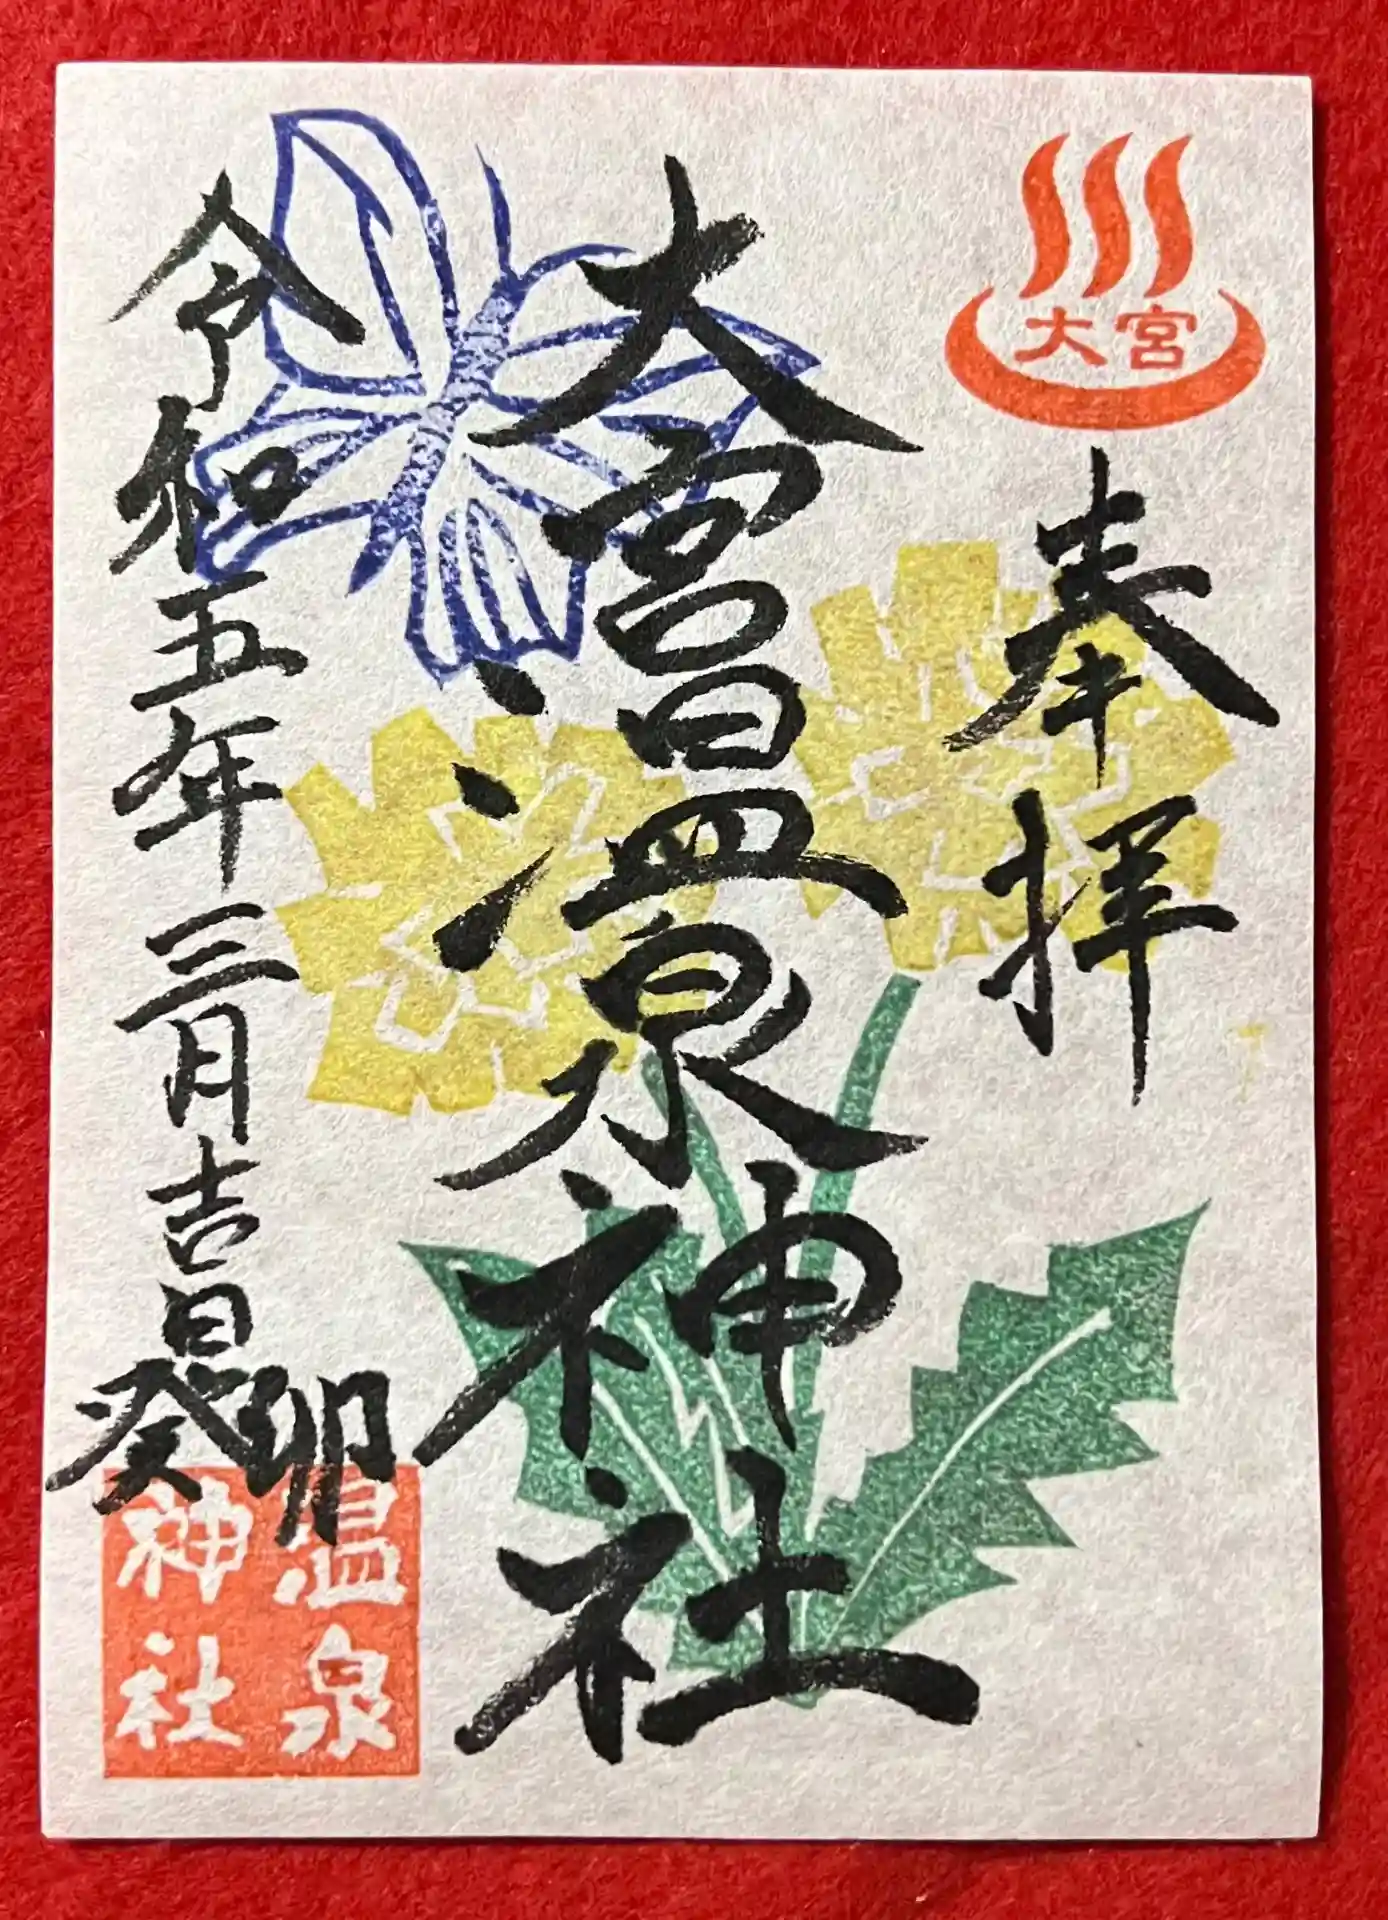 大宮
奉拝
大宮温泉神社
令和五年三月吉日
癸卯
温泉
神社